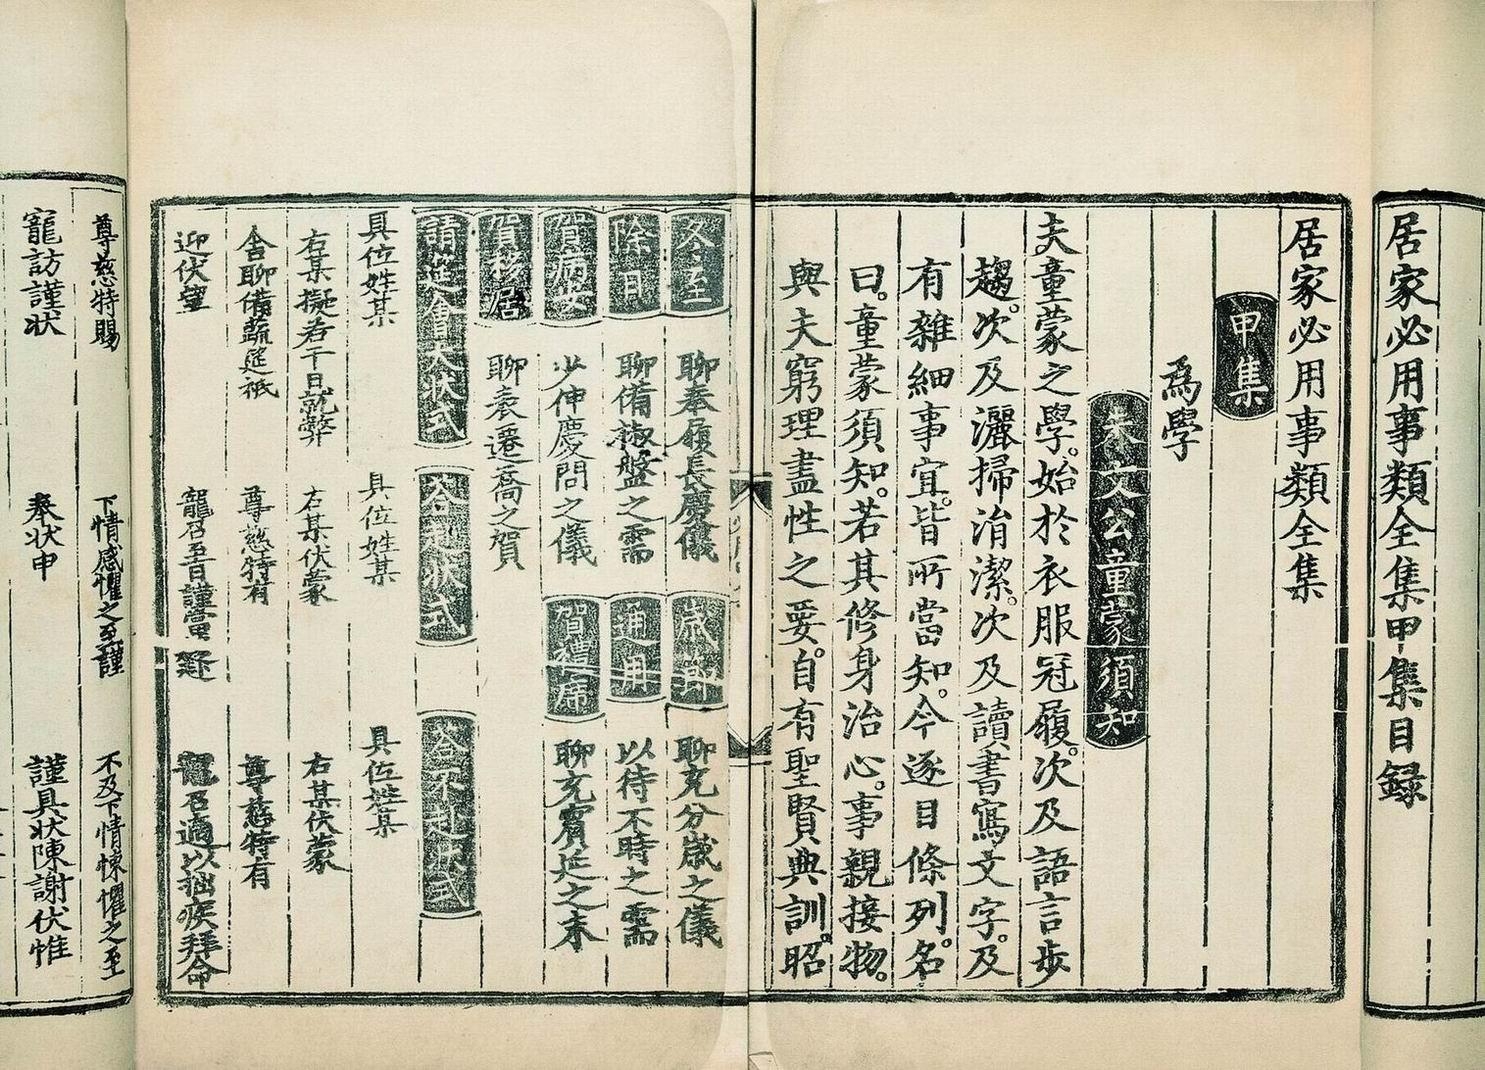 居家必用事類全集甲集目録
居家必用事類全集
甲集
爲學
朱文公童蒙須知
夫童蒙之學。始於衣服冠履。次及語言步
趨。次及灑掃涓潔。次及讀書寫文字。及
有雜細事宜。皆所當知。今逐目條列。名
曰。童蒙須知。若其修身治心。事親接物。
與夫窮理盡性之要。自有聖賢典訓。昭
冬至 聊奉履長慶儀 歲節 聊充分歲之儀
除日 聊備椒盤之需 通用 以待不時之需
賀病安 少伸慶問之儀 賀禮席 聊充賓筵之末
賀移居 聊表遷喬之賀
請筵會大狀式 答赴狀式 答不赴狀式
具位姓某 具位姓某 具位姓某
右某擬若干日就弊 右某伏蒙 右某伏蒙
舍聊備蔬筵祇 尊慈特有 尊慈特有
迎伏望 寵召至日謹當 寵召適以拙疾拜命
尊慈特賜 下情感懼之至謹 不及下情悚懼之至
寵訪謹状 奉状申 謹具状陳謝伏惟